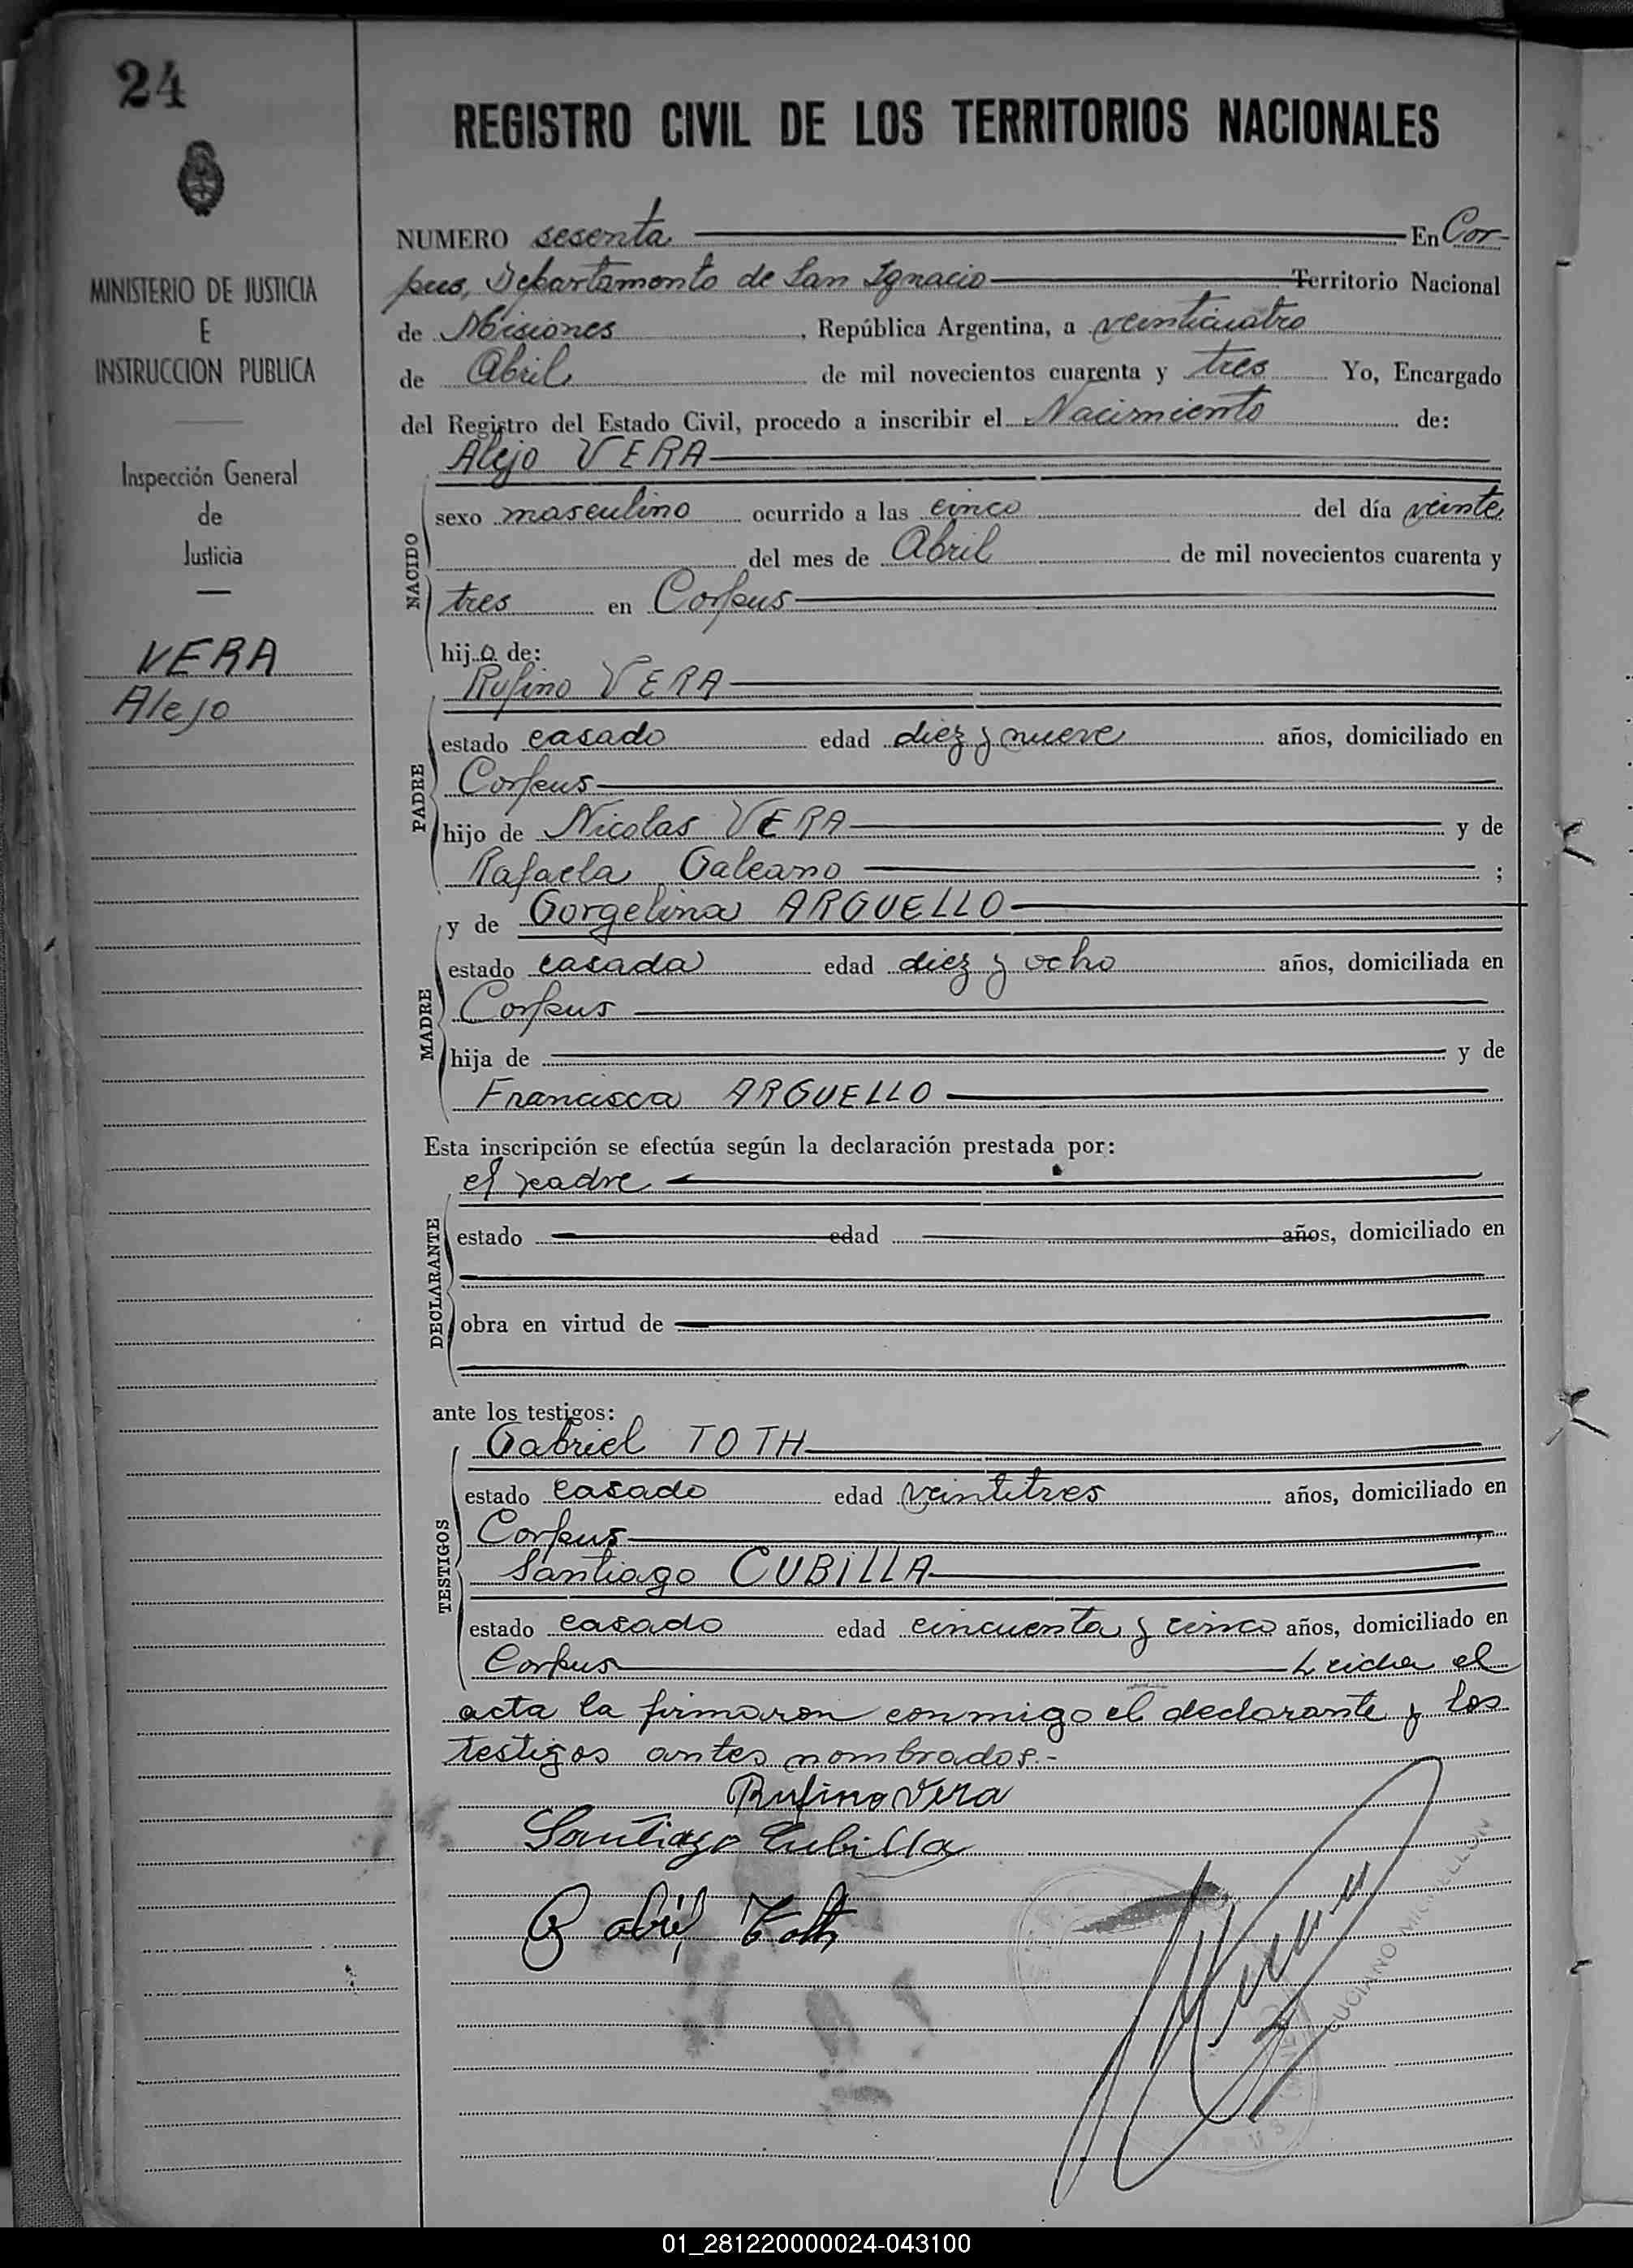 24
MINISTERIO DE JUSTICIA
E
INSTRUCCION PUBLICA
Inspección General
de
Justicia
VERA
Alejo
REGISTRO CIVIL DE LOS TERRITORIOS NACIONALES
NUMERO sesenta En Cor-
pus, Departamento de San Ignacio Territorio Nacional
de Misiones, República Argentina, a veinticuatro
de Abril de mil novecientos cuarenta y tres Yo, Encargado
del Registro del Estado Civil, procedo a inscribir el Nacimiento de:
Alejo VERA
NACIDO
sexo masculino ocurrido a las cinco del día veinte
del mes de Abril de mil novecientos cuarenta y
tres en Corpus
hijo de:
Rufino VERA
PADRE
estado casado edad diez y nueve años, domiciliado en
Corpus
hijo de Nicolas VERA y de
Rafaela Galeano ;
y de Gorgelina ARGUELLO
MADRE
estado casada edad diez y ocho años, domiciliada en
Corpus
hija de y de
Francisca ARGUELLO
Esta inscripción se efectúa según la declaración prestada por:
el padre
DECLARANTE
estado edad años, domiciliado en
obra en virtud de
ante los testigos:
Gabriel TOTH
TESTIGOS
estado casado edad veintitres años, domiciliado en
Corpus
Santiago CUBILLA
estado casado edad cincuenta y cinco años, domiciliado en
Corpus Leida el
acta la firmaron conmigo el declarante y los
testigos antes nombrados.-
Rufino Vera
Santiago Cubilla
Gabriel Toth
LUCIANO
01_281220000024-043100